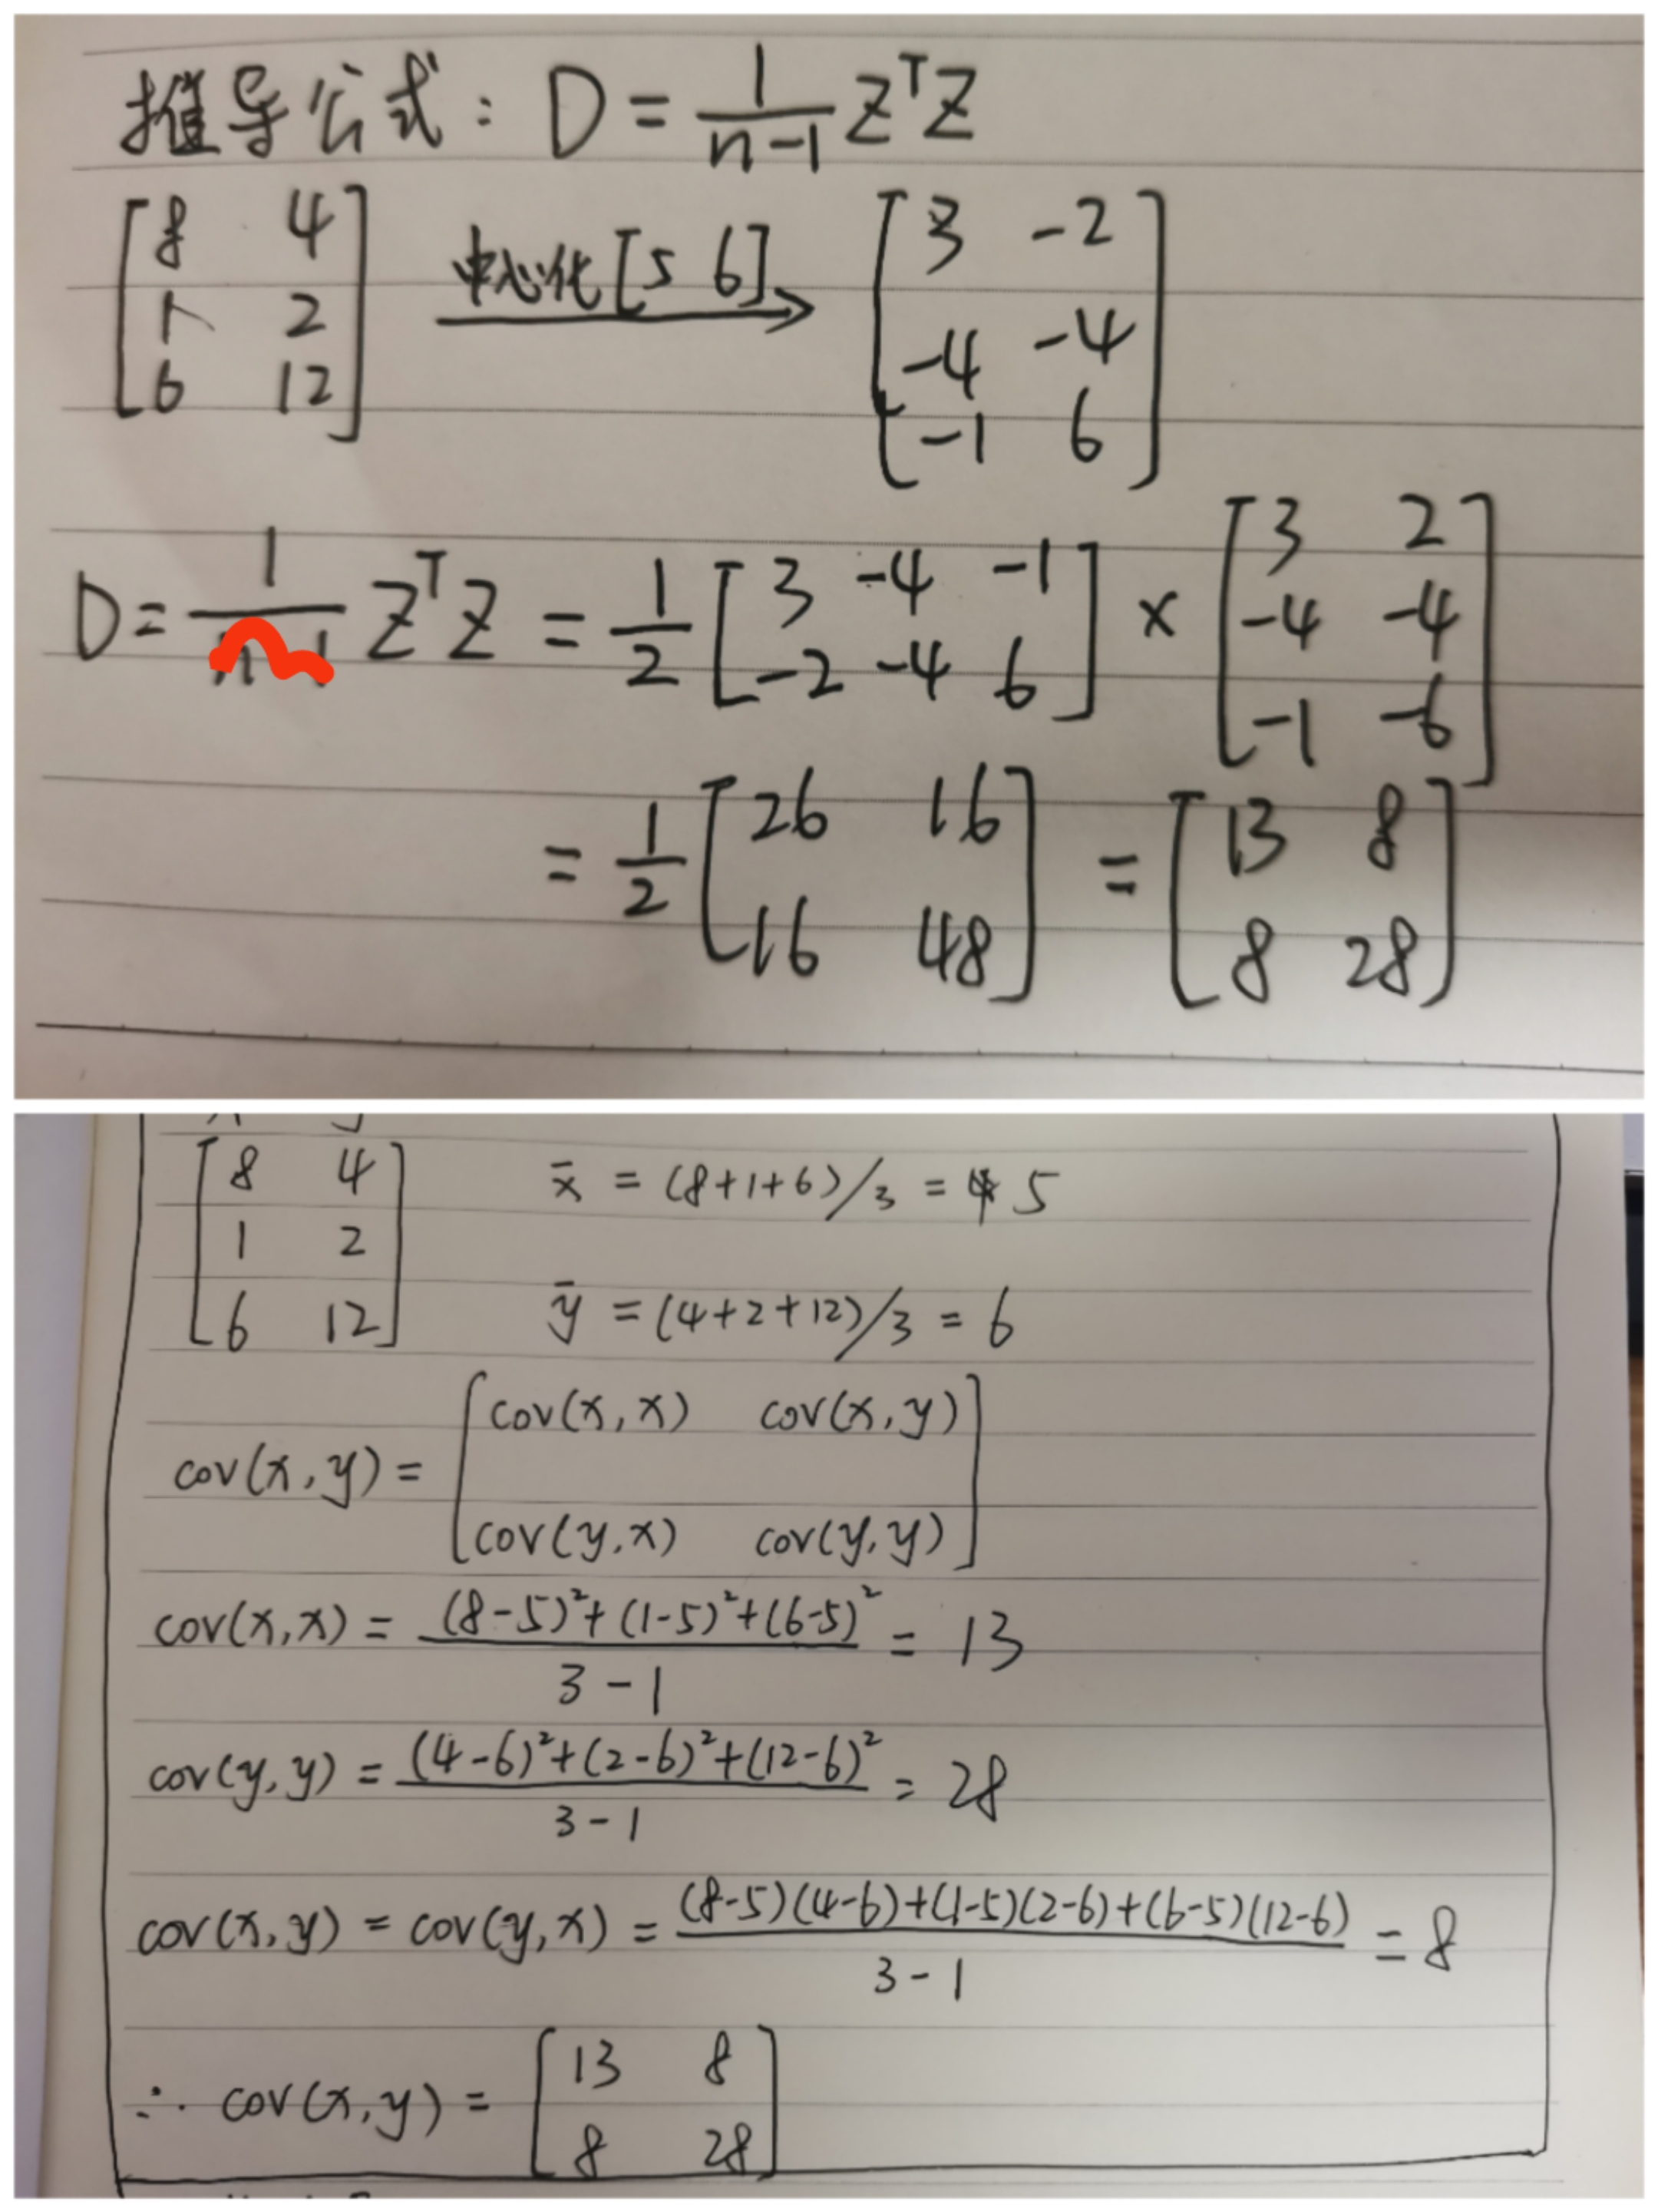 推导公式: D = 1/(n-1) Z^T Z
[8 4; 1 2; 6 12] 中心化[5 6] → [3 -2; -4 -4; -1 6]
D = 1/(n-1) Z^T Z = 1/2 [3 -4 -1; -2 -4 6] × [3 2; -4 -4; -1 -6]
= 1/2 [26 16; 16 48] = [13 8; 8 28]
[8 4; 1 2; 6 12]
x̄ = (8+1+6)/3 = 5
ȳ = (4+2+12)/3 = 6
cov(x,y) = [cov(x,x) cov(x,y); cov(y,x) cov(y,y)]
cov(x,x) = ((8-5)²+(1-5)²+(6-5)²)/(3-1) = 13
cov(y,y) = ((4-6)²+(2-6)²+(12-6)²)/(3-1) = 28
cov(x,y) = cov(y,x) = ((8-5)(4-6)+(1-5)(2-6)+(6-5)(12-6))/(3-1) = 8
∴ cov(x,y) = [13 8; 8 28]